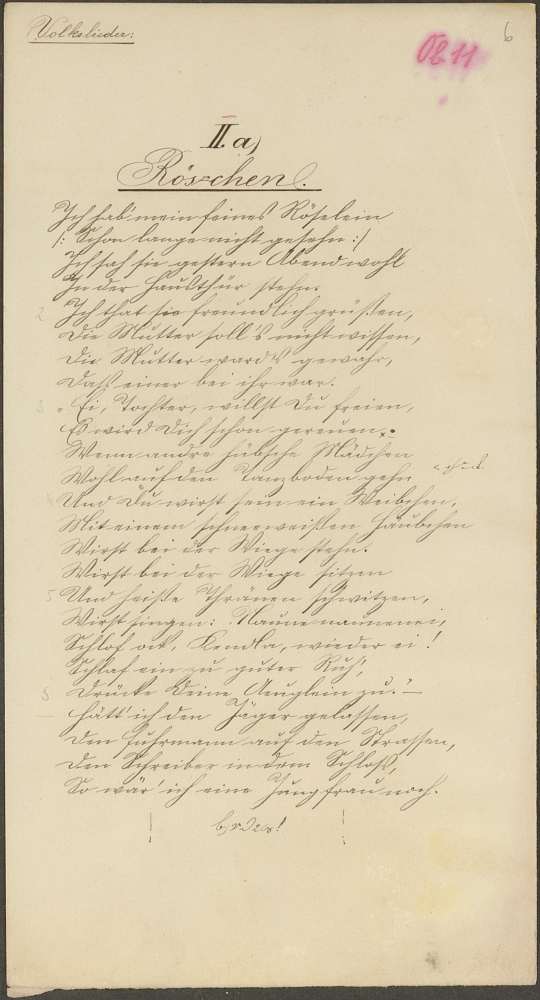 Volkslieder:
6
Ob 11
II. a)
Röschen.
Ich hab' mein feines Röselein
/: Schon lange nicht gesehn :/
Ich sah sie gestern Abend wohl
In der Hausthür stehn.
2 Ich that sie freundlich grüßen,
Die Mutter soll's nicht wissen,
Die Mutter ward's gewahr,
Daß einer bei ihr war.
3 „Ei, Tochter, willst Du freien,
Es wird Dich schon gereuen.
Wenn andre hübsche Mädchen
Wohl auf den Tanzboden gehn
Und Du wirst sein ein Weibchen,
Mit einem schneeweißen Häubchen
Wirst bei der Wiege stehn.
Wirst bei der Wiege sitzen
5 Und heiße Thränen schwitzen,
Wirst singen:
Schlof ock, Kendla, wieder ei!
Schlaf ein zu guter Ruh',
Drücke Deine Äuglein zu." –
Hätt' ich den Jäger gelassen,
Den Fuhrmann auf den Strassen,
Den Schreiber in dem Schloß,
So wär' ich eine Jungfrau noch.